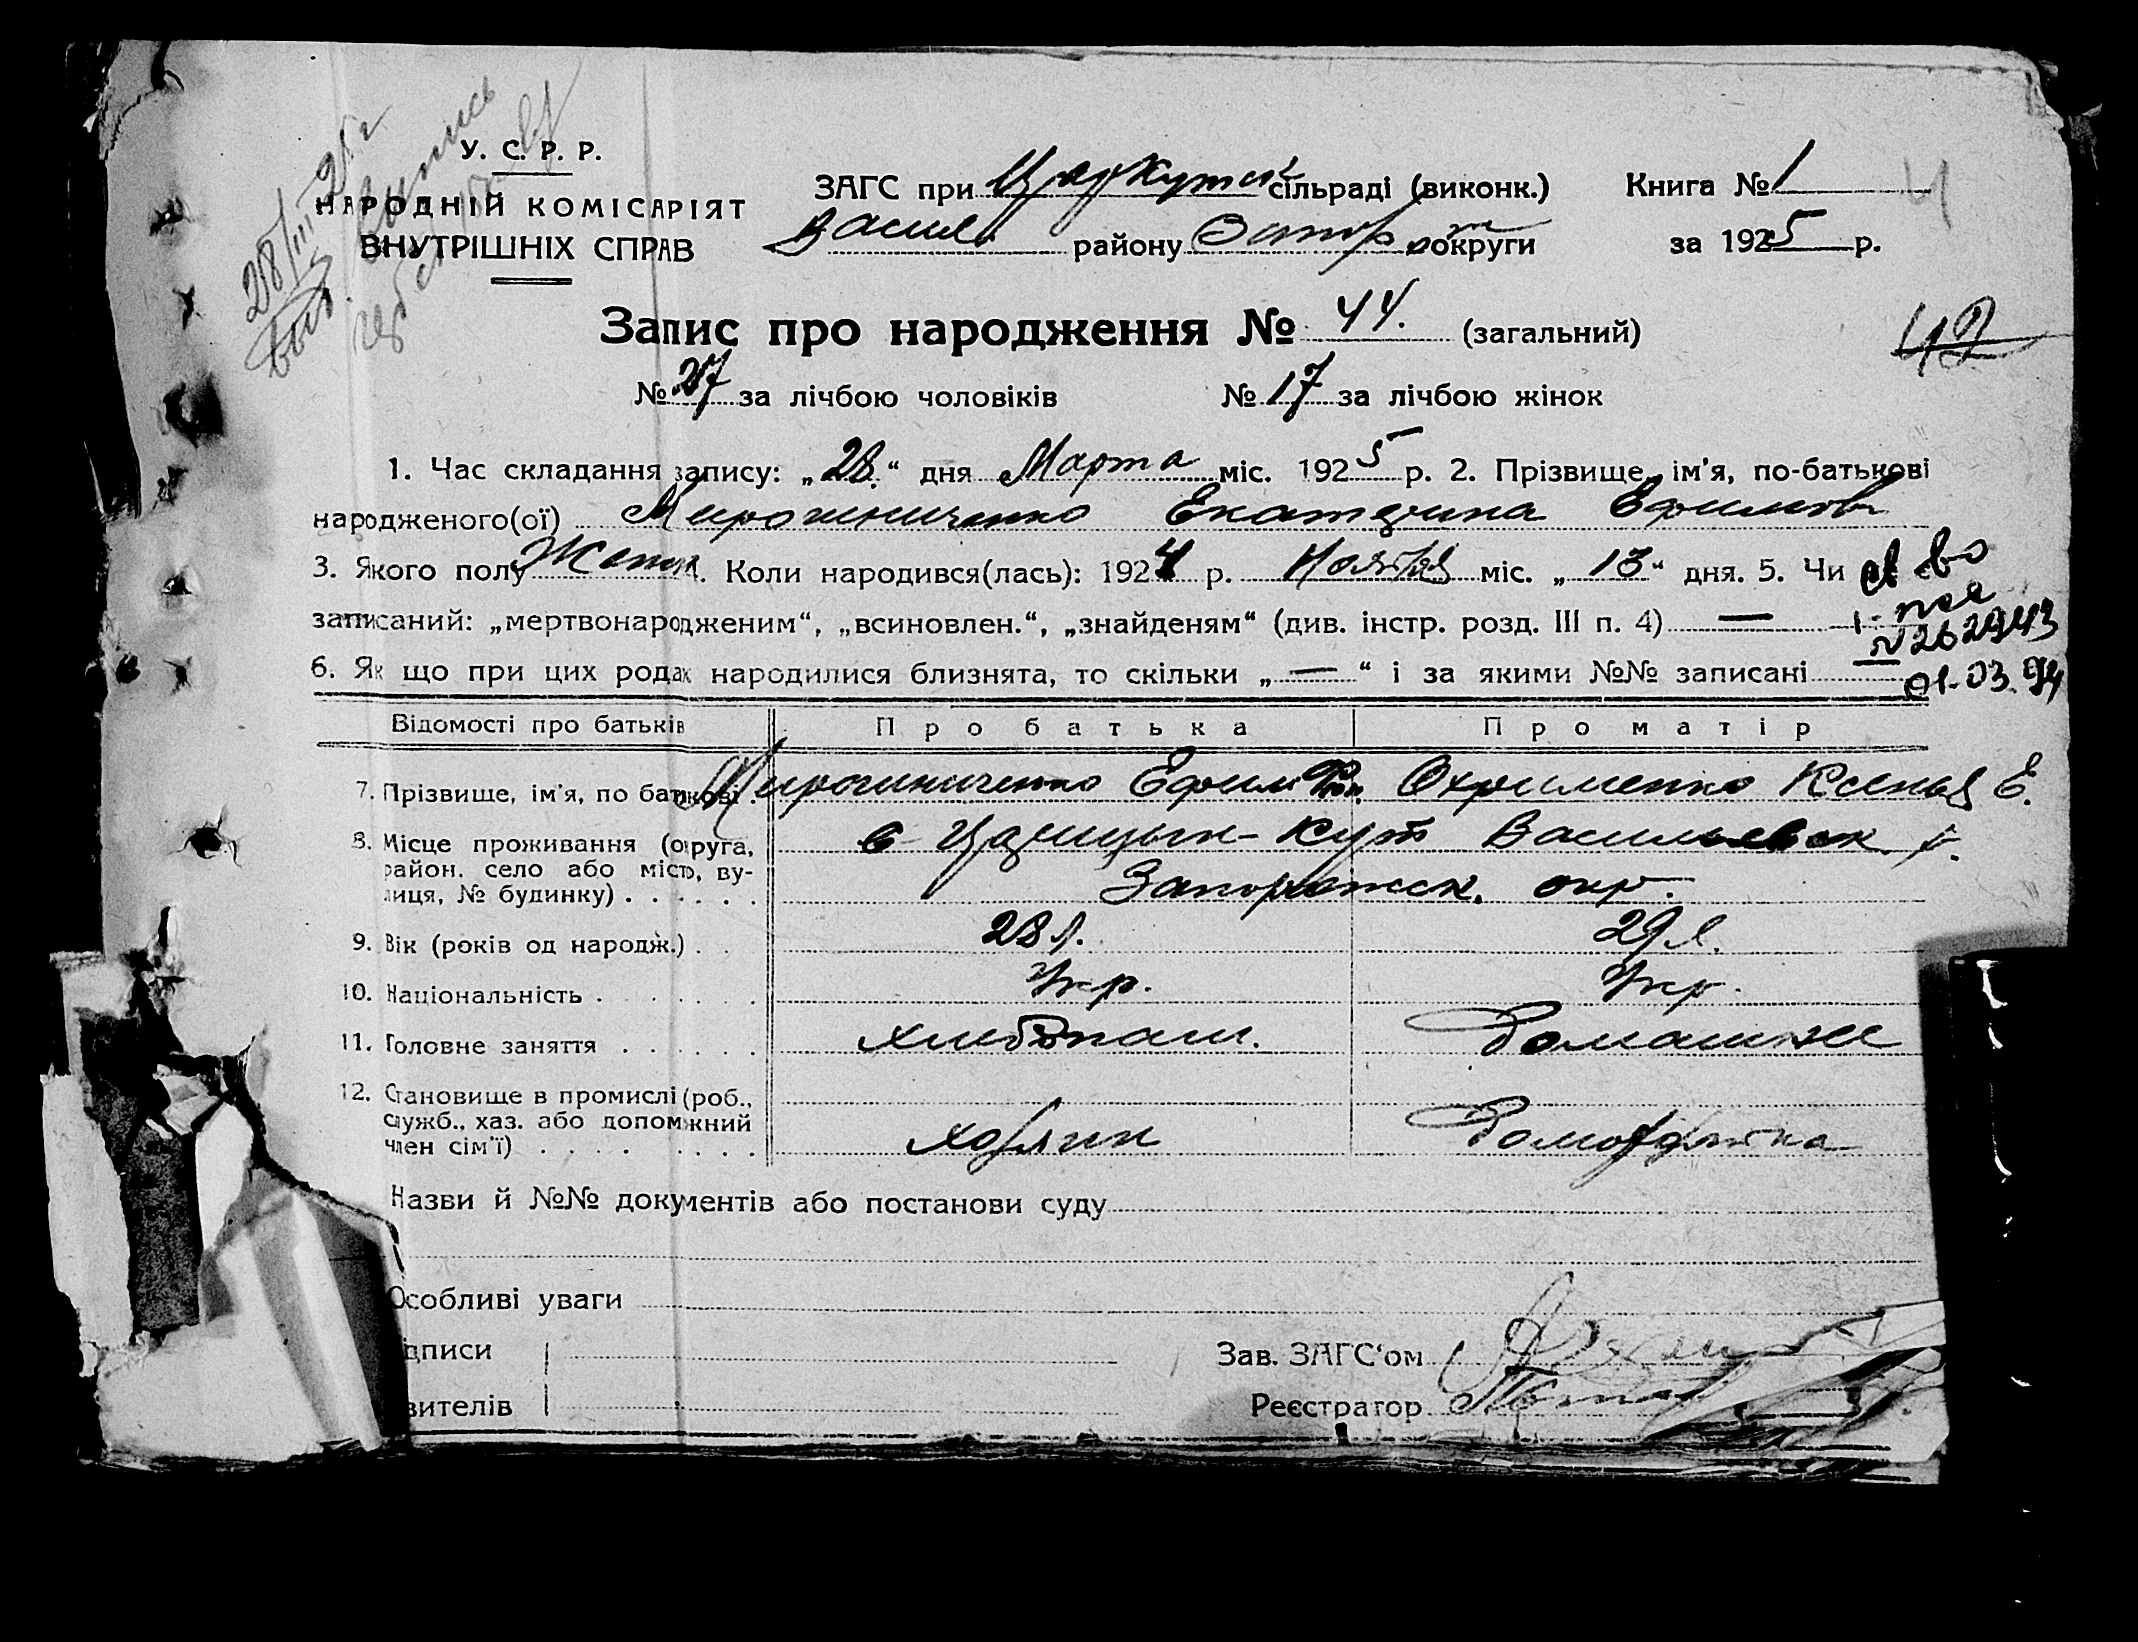 У. С. Р. Р.
НАРОДНІЙ КОМІСАРІЯТ
ВНУТРІШНІХ СПРАВ
28/III 25 г
Выпись
ЗАГС при Царкутск сільраді (виконк.) Книга № 1
Васил. району Запор. округи за 1925 р.
Запис про народження № 44. (загальний)
42
№ 27 за лічбою чоловіків № 17 за лічбою жінок
1. Час складання запису: „28.“ дня Марта міс. 1925 р. 2. Прізвище, ім'я, по-батькові
народженого(ої) Мирошниченко Екатерина Ефимов
3. Якого полу Женск. 4. Коли народився(лась): 1924 р. Ноября міс. „13“ дня. 5. Чи не є
св во
записаний: „мертвонародженим“, „всиновлен.“, „знайденям“ (див. інстр. розд. III п. 4) —
№ 262943
6. Як що при цих родах народилися близнята, то скільки „—“ і за якими №№ записані —
01.03.94
Відомості про батьків Про батька Про матір
7. Прізвище, ім'я, по батькові . Мирошниченко Ефим Охрименко Ксенья Е.
8. Місце проживання (округа, с Царицын-Кут Васильевск. р.
район. село або місто, вулиця, № будинку) . . . . . . Запорожск. окр.
9. Вік (років од народж.) . . 28 л. 29 л.
10. Національність . . . . . . . Укр. Укр.
11. Головне заняття . . . . . . хлебопаш. Домашнее
12. Становище в промислі (роб.,
служб., хаз. або допоможний
член сім'ї) . . . . . . . . хозяин Домохозяйка
Назви й №№ документів або постанови суду
Особливі уваги
ідписи Зав. ЗАГС'ом
вителів Реєстратор